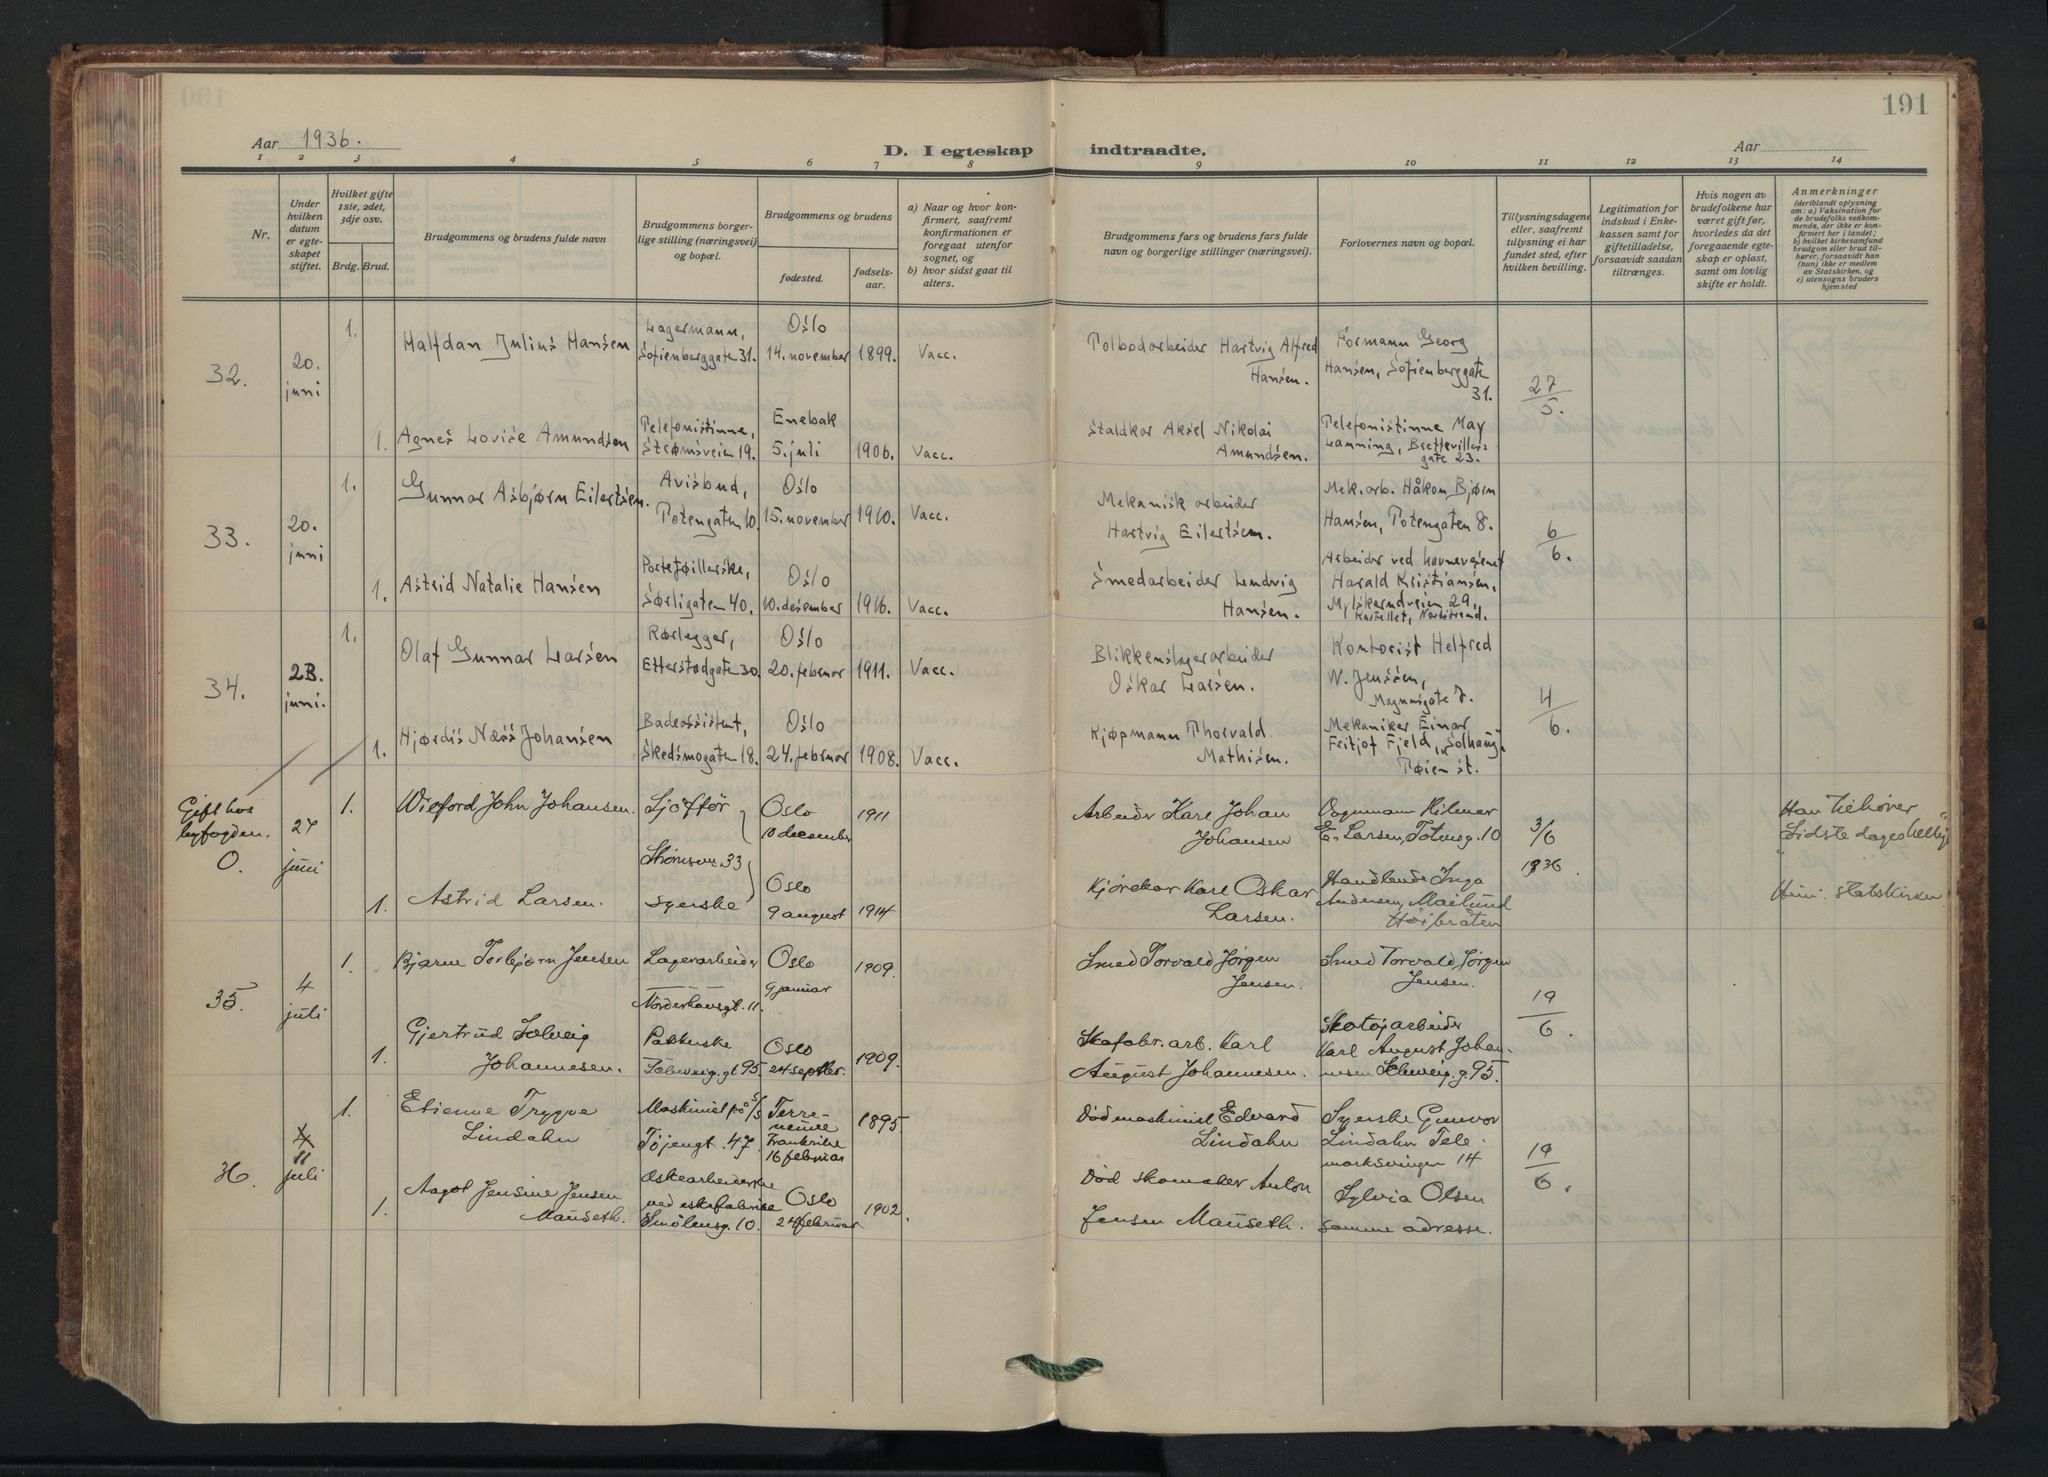 191
Aar 1936.
D. I egteskap indtraadte.
Aar
1 2 3 4 5 6 7 8 9 10 11 12 13 14
Nr.
Under
hvilken
datum
er egte-
skapet
stiftet.
Hvilket gifte
1ste, 2det,
3dje osv.
Brdg. Brud.
Brudgommens og brudens fulde navn
Brudgommens borger-
lige stilling (næringsvei)
og bopæl.
Brudgommens og brudens
fødested.
fødsels-
aar.
a) Naar og hvor kon-
firmert, saafremt
konfirmationen er
foregaat utenfor
sognet, og
b) hvor sidst gaat til
alters.
Brudgommens fars og brudens fars fulde
navn og borgerlige stillinger (næringsvei).
Forlovernes navn og bopæl.
Tillysningsdagene
eller, saafremt
tillysning ei har
fundet sted, efter
hvilken bevilling.
Legitimation for
indskud i Enke-
kassen samt for
giftetilladelse,
forsaavidt saadan
tiltrænges.
Hvis nogen av
brudefolkene har
været gift før,
hvorledes da det
foregaaende egte-
skap er opløst,
samt om lovlig
skifte er holdt.
Anmerkninger
(deriblandt oplysning
om: a) Vaksination for
de brudefolks vedkom-
mende, der ikke er kon-
firmert her i landet;
b) hvilket kirkesamfund
brudgom eller brud til-
hører, forsaavidt han
(hun) ikke er medlem
av Statskirken, og
c) utensogns bruders
hjemsted
32.
20.
juni
1.
Halfdan Julius Hansen
Lagermann,
Sofienberggaten 31.
Oslo
14. november
1899.
Vacc.
Tolbodarbeider Hartvig Alfred
Hansen.
Formann Georg
Hansen, Sofienberggate
31.
27/5.
1.
Agnes Lovise Amundsen
Telefonistinne,
Strømsveien 19.
Enebak
5. juli
1906.
Vacc.
Staldkar Aksel Nikolai
Amundsen.
Telefonistinne May
Lanning, Bretteville's
gate 23.
33.
20.
juni
1.
Gunnar Asbjørn Eilertsen.
Avisbud,
Totengaten 10.
Oslo
15. november
1910.
Vacc.
Mekanisk arbeider
Hartvig Eilertsen.
Mek.arb. Håkon Bjørn
Hansen, Totengaten 8.
6/6.
1.
Astrid Natalie Hansen
Porteføillerske,
Sørligaten 40.
Oslo
10. desember
1916.
Vacc.
Smedarbeider Lundvig
Hansen.
Arbeider ved havnevesenet
Harald Kristiansen,
Kastellet, Nordstrand.
34.
23.
juni.
1.
Olaf Gunnar Larsen
Rørlegger,
Etterstadgaten 30.
Oslo
20. februar
1911.
Vacc.
Blikkenslagerarbeider
Oskar Larsen.
Kontorist Helfred
W. Jenssen,
Magnusgate 7.
4/6.
1.
Hjørdis Næss Johansen
Badeassistent,
Skedsmogaten 18.
Oslo
24. februar
1908.
Vacc.
Kjøpmann Thorvald
Mathisen.
Mekaniker Einar
Fritjof Fjeld, "Solhaug"
Tøien st.
Gift hos
byfogden.
0.
27
juni
1.
Wieford John Johansen.
Sjåffør
Oslo
10 december
1911
Arbeider Karl Johan
Johansen
Vognmann Hilmar
E. Larsen, Totensg. 10
3/6
1936.
Han tilhører
"Sidste dages hellige"
1.
Astrid Larsen.
Strömsvn 33
Syerske
Oslo
9 august
1914
Kjørekar Karl Oskar
Larsen.
Handlende Inga
Andersen, Mailund
Høibråten
Hun: statskirken.
35.
4
juli
1.
Bjarne Torbjørn Jensen
Lagerarbeider
Norderhovsgt. 11.
Oslo
9 januar
1909.
Smed Torvald Jørgen
Jensen.
Smed Torvald Jørgen
Jensen.
19/6.
1.
Gjertrud Solveig
Johannesen.
Pakkerske
Schweig.gt 95.
Oslo
24 septber.
1909.
Skofabr. arb. Karl
August Johannesen.
Skotøjarbeider
Karl August Johan-
nesen Schweig.g. 95.
36.
11
juli
1.
Etienne Trygve
Lindahn
Maskinist på S/S
Tøjengt. 47.
Terre-
neuve
Frankrike
16 februar
1895.
Död maskinist Edvard
Lindahn
Syerske Gunvor
Lindahn Tele-
marksvingen 14
19/6.
1.
Aagot Jensine Jensen
Mauseth.
Eskearbeiderske
ved eskefabrikk
Smålensg. 10.
Oslo
24 februar
1902.
Död skomaker Anton
Jensen Mauseth.
Sylvia Olsen
samme adresse.